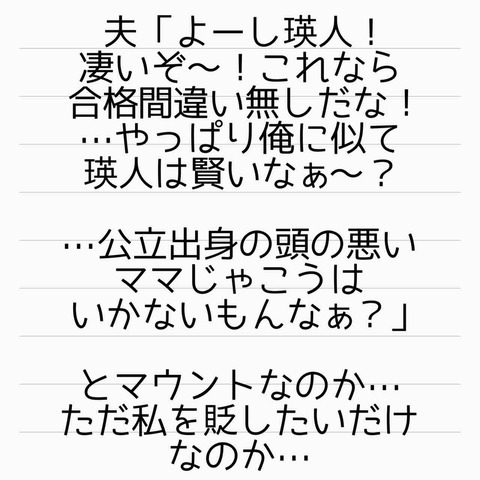 夫「よーし瑛人！
凄いぞ〜！これなら
合格間違い無しだな！
…やっぱり俺に似て
瑛人は賢いなぁ〜？
…公立出身の頭の悪い
ママじゃこうは
いかないもんなぁ？」
とマウントなのか…
ただ私を貶したいだけ
なのか…